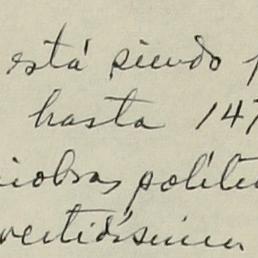 está siendo
hasta 147
niobras polít
vertidísimen